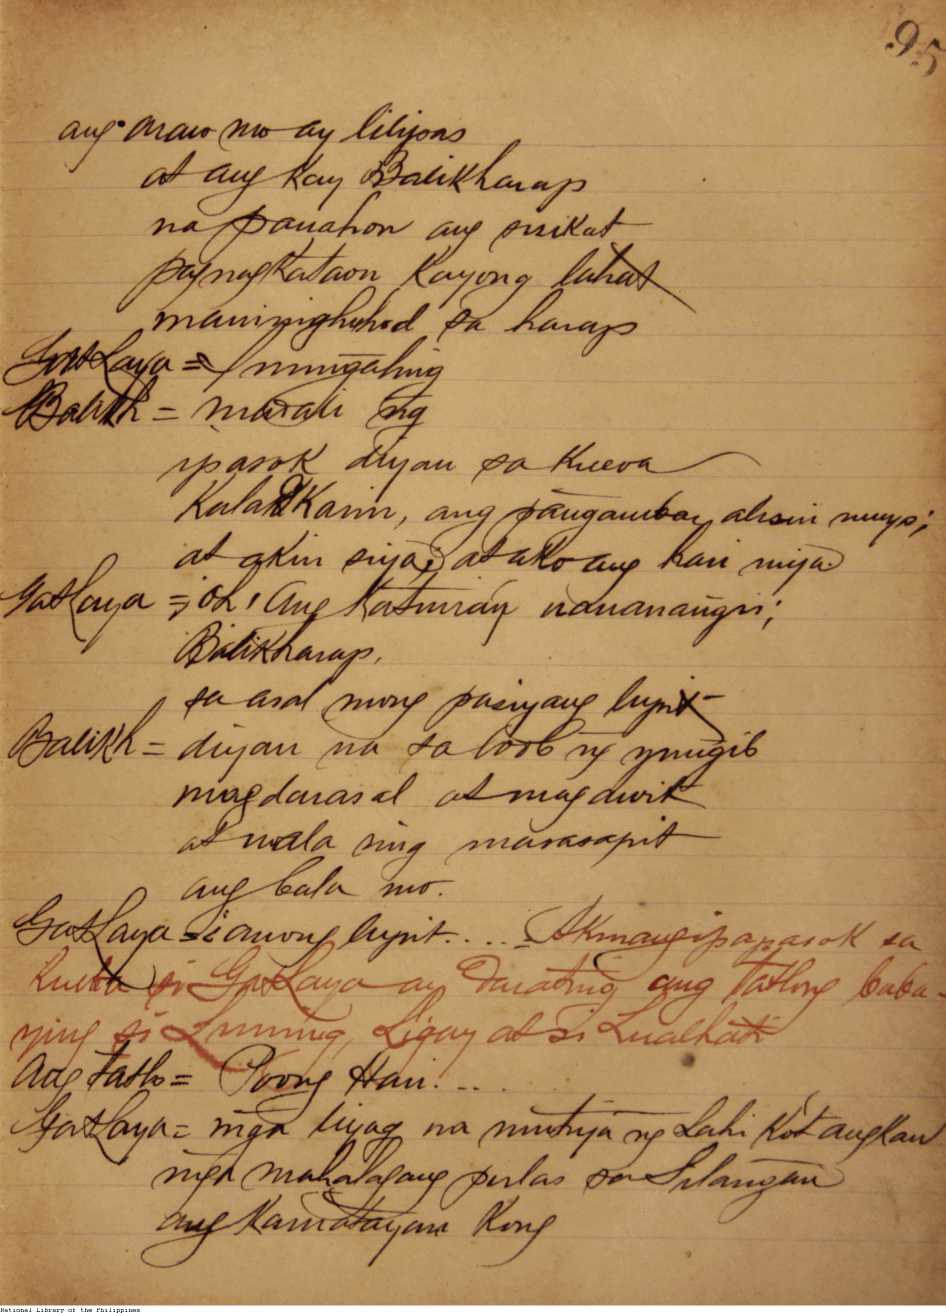 95
ang araw mo ay lilipas
at ang kay Balikharap
na panahon ang sisikat
pagnagkataon kayong lahat
maninighuhod sa harap
GatLaya =
Balikh = madali ng
ipasok diyan sa kueva
KalatKarin, ang pangambay alisin nuyo;
at akin siya; at ako ang hari niya
GatLaya = ¡oh! ang Katuiran nananangis;
Balikharap,
sa asal mong pasiyang lupit
Balikh = diyan na sa loob ng yungib
magdarasal at magdwit
at wala ring masasapit
ang bala mo.
GatLaya = ¡anong lupit.... Akmang ipapasok sa
kueba si GatLaya ay Darating ang tatlong baba-
ying si Luning, Ligay at si Lualhati
Ang tatlo = Poong Hari....
GatLaya = mga liyag na mutya ng Lahi Ko't angkan
mga mahalagang perlas sa Silangan
ang kamatayan kong
National Library of the Philippines